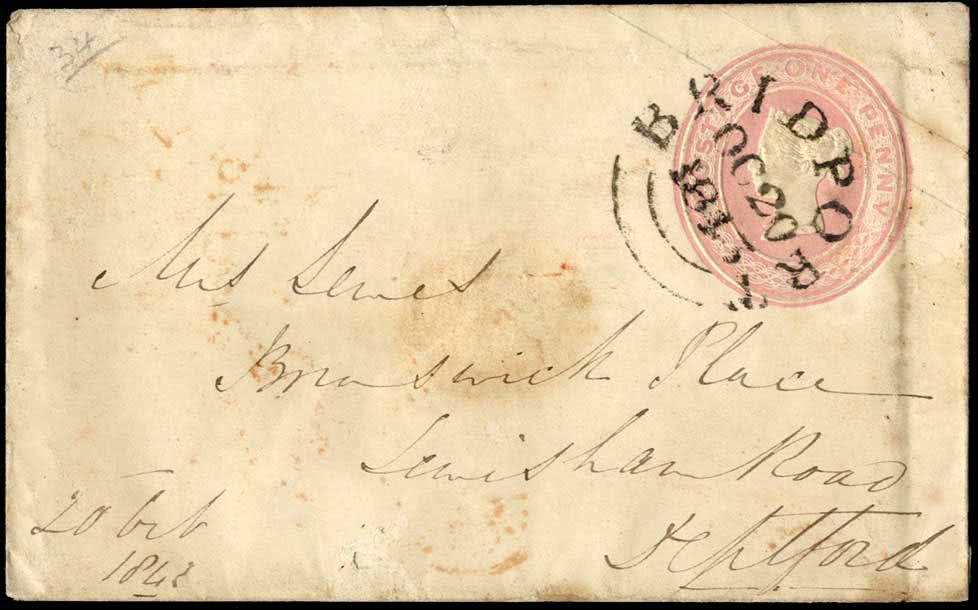 34
POSTAGE ONE PENNY
BRIDPORT
OC 20
1843
Mrs Lewes
Brunswick Place
Lewisham Road
Deptford
20 Octb
1843